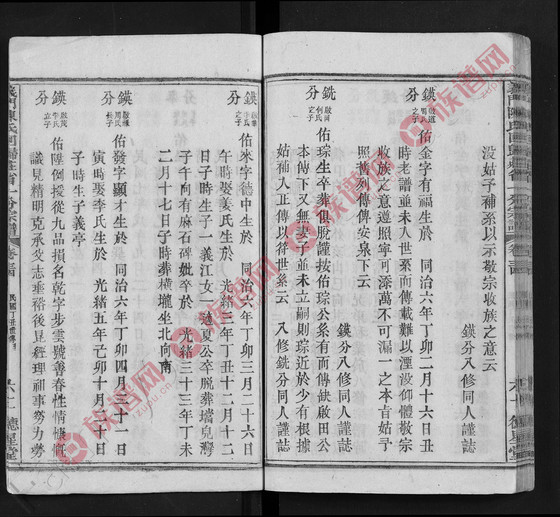 没姑予補系以示敬宗收族之意云
鍈分八修同人謹誌
鍈分
佑金字有福生於 同治六年丁卯二月十六日丑
時老譜並未入世系而傳載難以湮沒仰體敬宗
收族之意遵照寧可添萬不可漏一之本旨姑予
照前列傳傳安泉下云
鍈分八修同人謹誌
鍈分
佑琮生卒葬俱脫謹按佑琮公系有而傳缺啟田公
本傳下又無妻子並未立嗣則琮近於少有根據
姑補人正傳以符世系云 八修銑分同人謹誌
鍈分
佑來字德中生於 同治六年丁卯三月二十六日
午時娶姜氏生於 光緒三年丁丑十二月十二
日子時生子一義江女一適夏公卒脫葬壋皃灣
子午向有麻石碑妣卒於 光緒三十三年丁未
二月十七日子時葬橫壠坐北向南
鍈分
佑發字顯才生於 同治六年丁卯四月三十一日
寅時娶李氏生於 光緒五年己卯十月二十日
子時生子義亭
鍈分
佑陞例授從九品損名乾字步雲號善春性情慷慨
議見精明克承父志垂裕後昆經理祠事勞力勞
民國丁丑重修
六十一
德星堂
德星堂
族谱网
zupu.cn